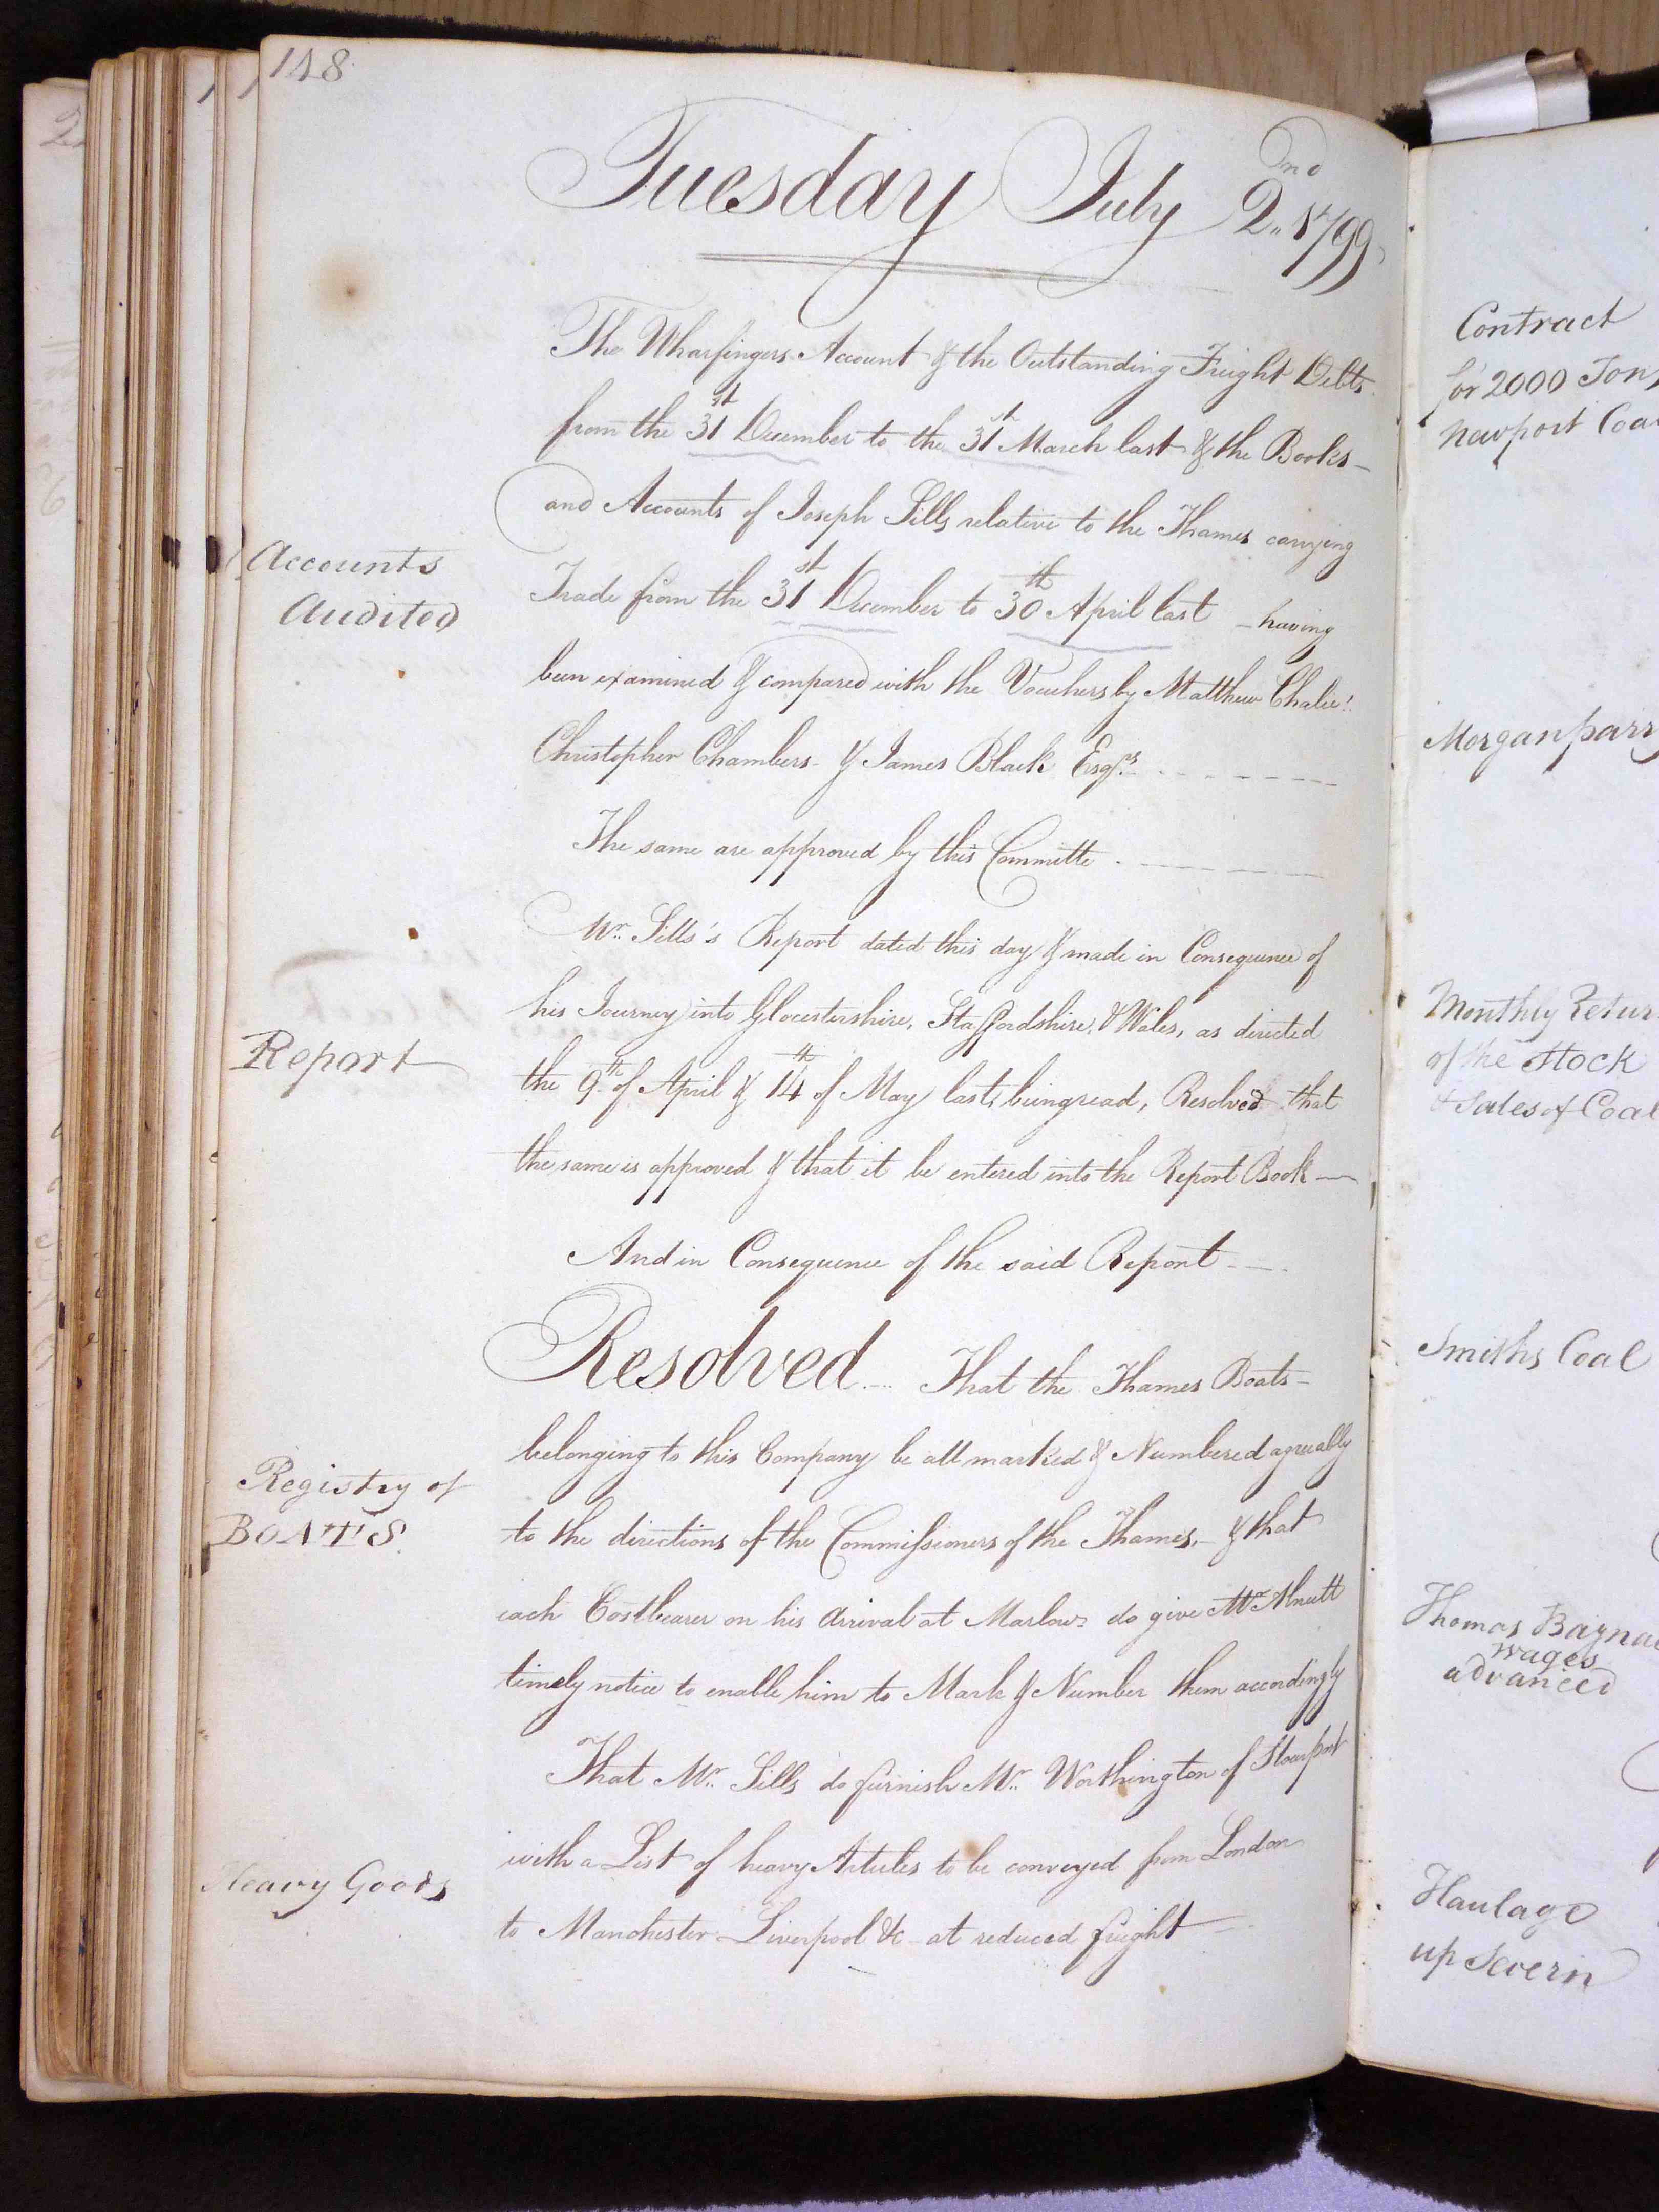 148
Tuesday July 2nd 1799
The Wharfingers Account & the Outstanding Freight Debts
from the 31st December to the 31st March last & the Books
and Accounts of Joseph Sills relative to the Thames carrying
Accounts
Audited
Trade from the 31st December to 30th April last - having
been examined & compared with the Vouchers by Matthew Chalie
Christopher Chambers & James Black Esqrs
The same are approved by this Committe
Mr. Sills's Report dated this day & made in Consequence of
his Journey into Glocestershire, Staffordshire, & Wales, as directed
Report
the 9th of April & 14th of May last, being read, Resolved that
the same is approved & that it be entered into the Report Book
And in Consequence of the said Report
Resolved That the Thames Boats
belonging to this Company be all marked & Numbered agreeably
Registry of
BOATS
to the directions of the Commissioners of the Thames, & that
each Costbearer on his Arrival at Marlow do give Mr
timely notice to enable him to Mark & Number them accordingly
That Mr. Sills do furnish Mr. Worthington of Stourport
with a List of heavy Articles to be conveyed from London
Heavy Goods
to Manchester Liverpool &c at reduced freight
Contract
for 2000 Tons
Newport Coa
Morgan parry
Monthly Retur
of the Stock
& Sales of Coal
Smiths Coal
Thomas
Wages
advanced
Haulage
up Severn